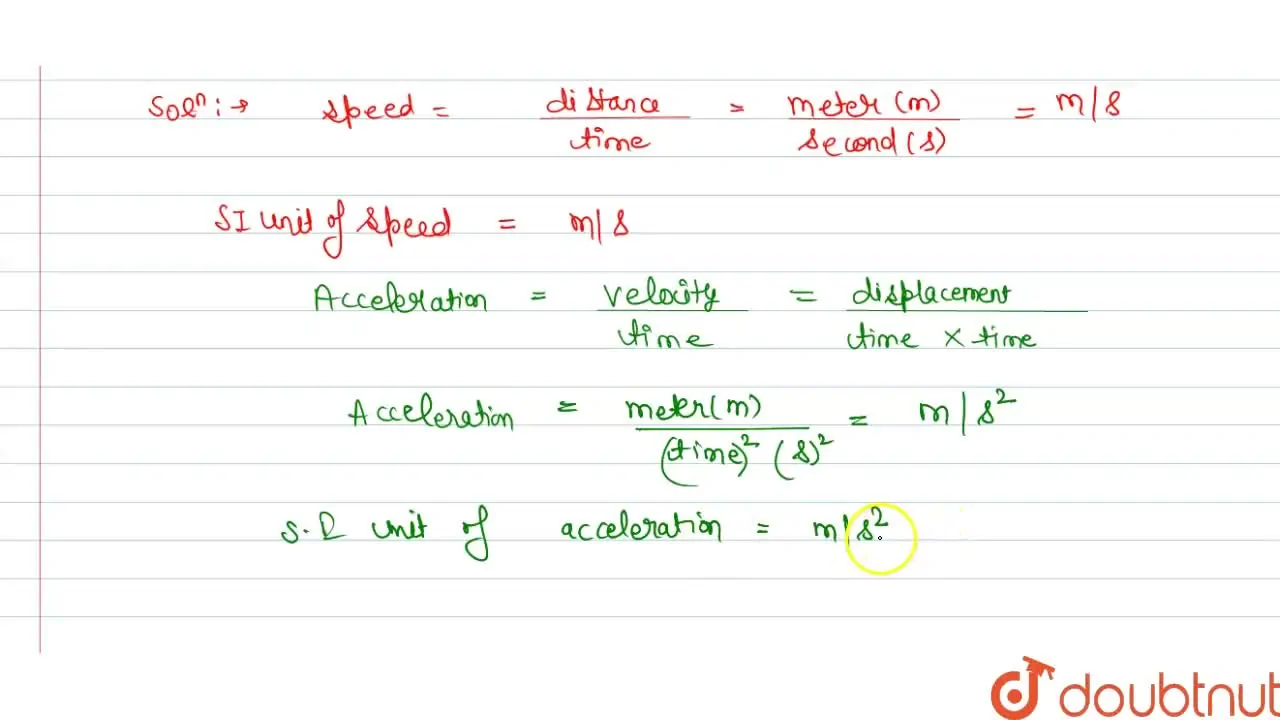 Solⁿ:→ speed = distance/time = meter(m)/second(s) = m/s
SI unit of speed = m/s
Acceleration = velocity/time = displacement/time × time
Acceleration = meter(m)/(time)² (s)² = m/s²
S.I unit of acceleration = m/s²
doubtnut